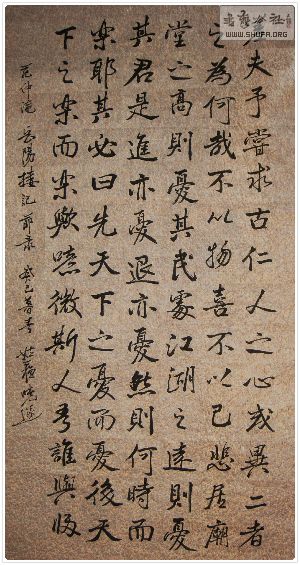 夫予嘗求古仁人之心或異二者
之為何哉不以物喜不以己悲居廟
堂之高則憂其民處江湖之遠則憂
其君是進亦憂退亦憂然則何時而
樂耶其必曰先天下之憂而憂後天
下之樂而樂歟噫微斯人吾誰與歸
范仲淹 岳陽樓記 節录 癸巳暮春
WWW.SHUFA.ORG